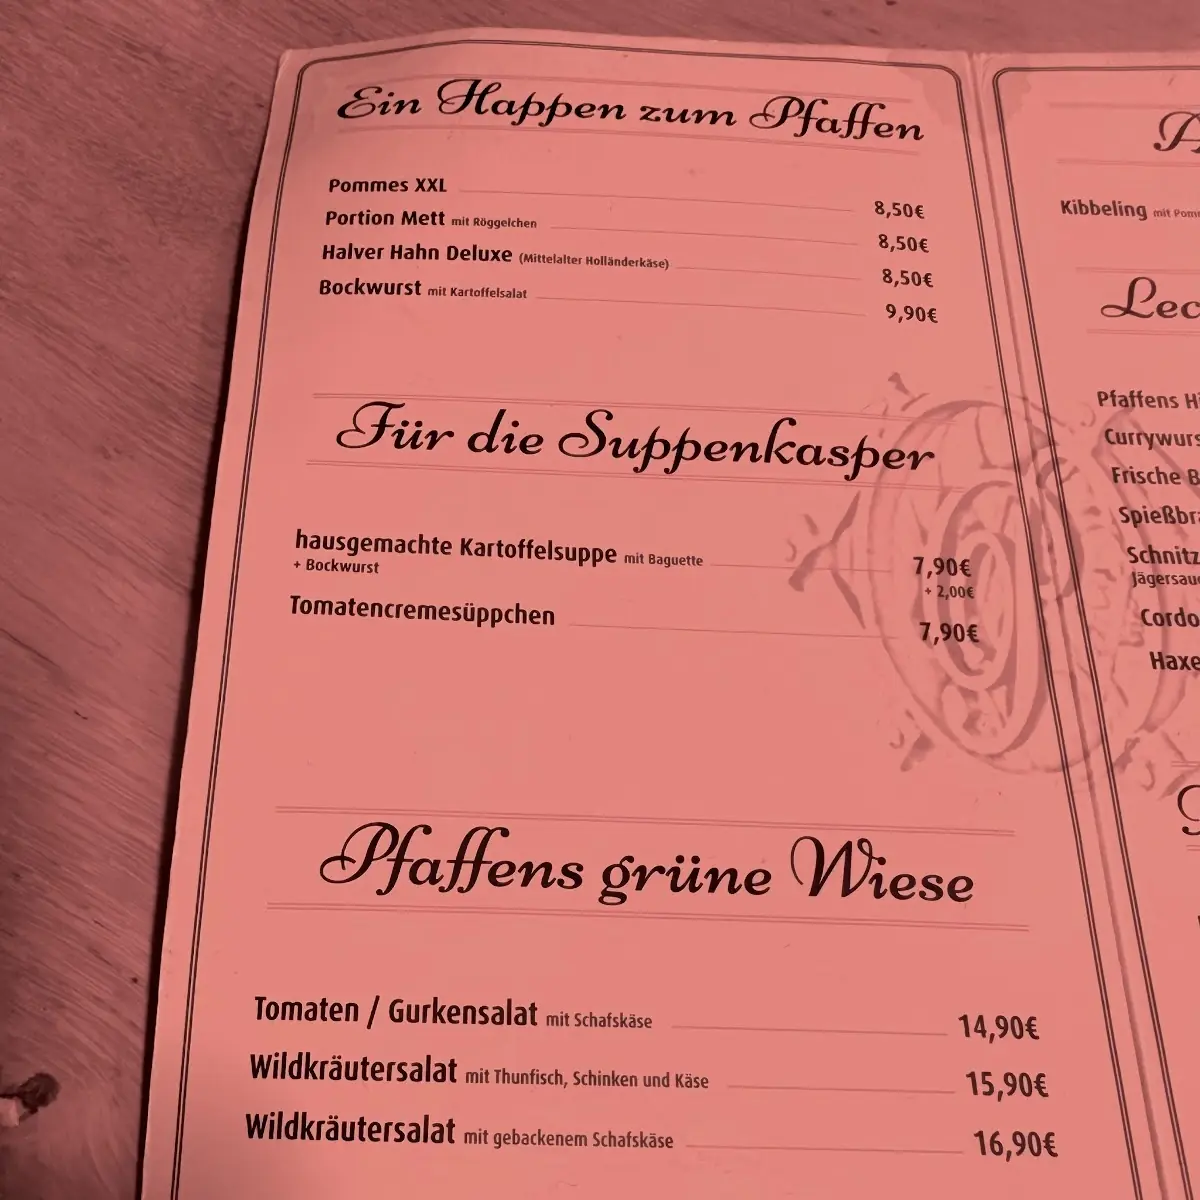 Ein Happen zum Pfaffen
Pommes XXL 8,50€
Portion Mett mit Röggelchen 8,50€
Halver Hahn Deluxe (Mittelalter Holländerkäse) 8,50€
Bockwurst mit Kartoffelsalat 9,90€
Für die Suppenkasper
hausgemachte Kartoffelsuppe mit Baguette 7,90€
+ Bockwurst + 2,00€
Tomatencremesüppchen 7,90€
Pfaffens grüne Wiese
Tomaten / Gurkensalat mit Schafskäse 14,90€
Wildkräutersalat mit Thunfisch, Schinken und Käse 15,90€
Wildkräutersalat mit gebackenem Schafskäse 16,90€
Kibbeling mit
Pfaffens
Frische